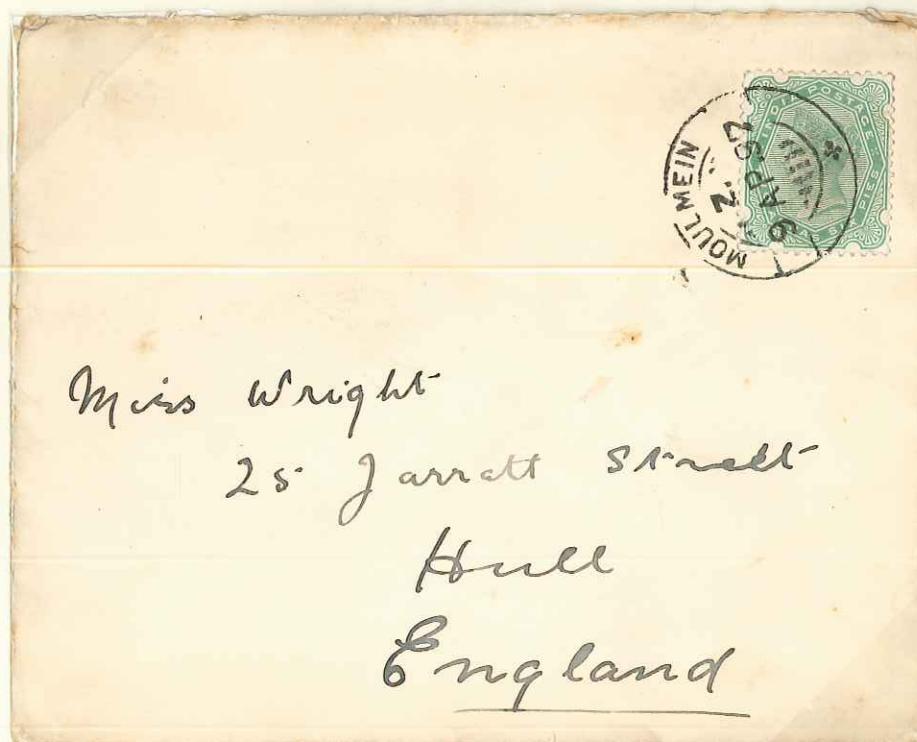 INDIA POSTAGE
MOULMEIN
9 AP 92
Miss Wright
25 Jarratt Street
Hull
England